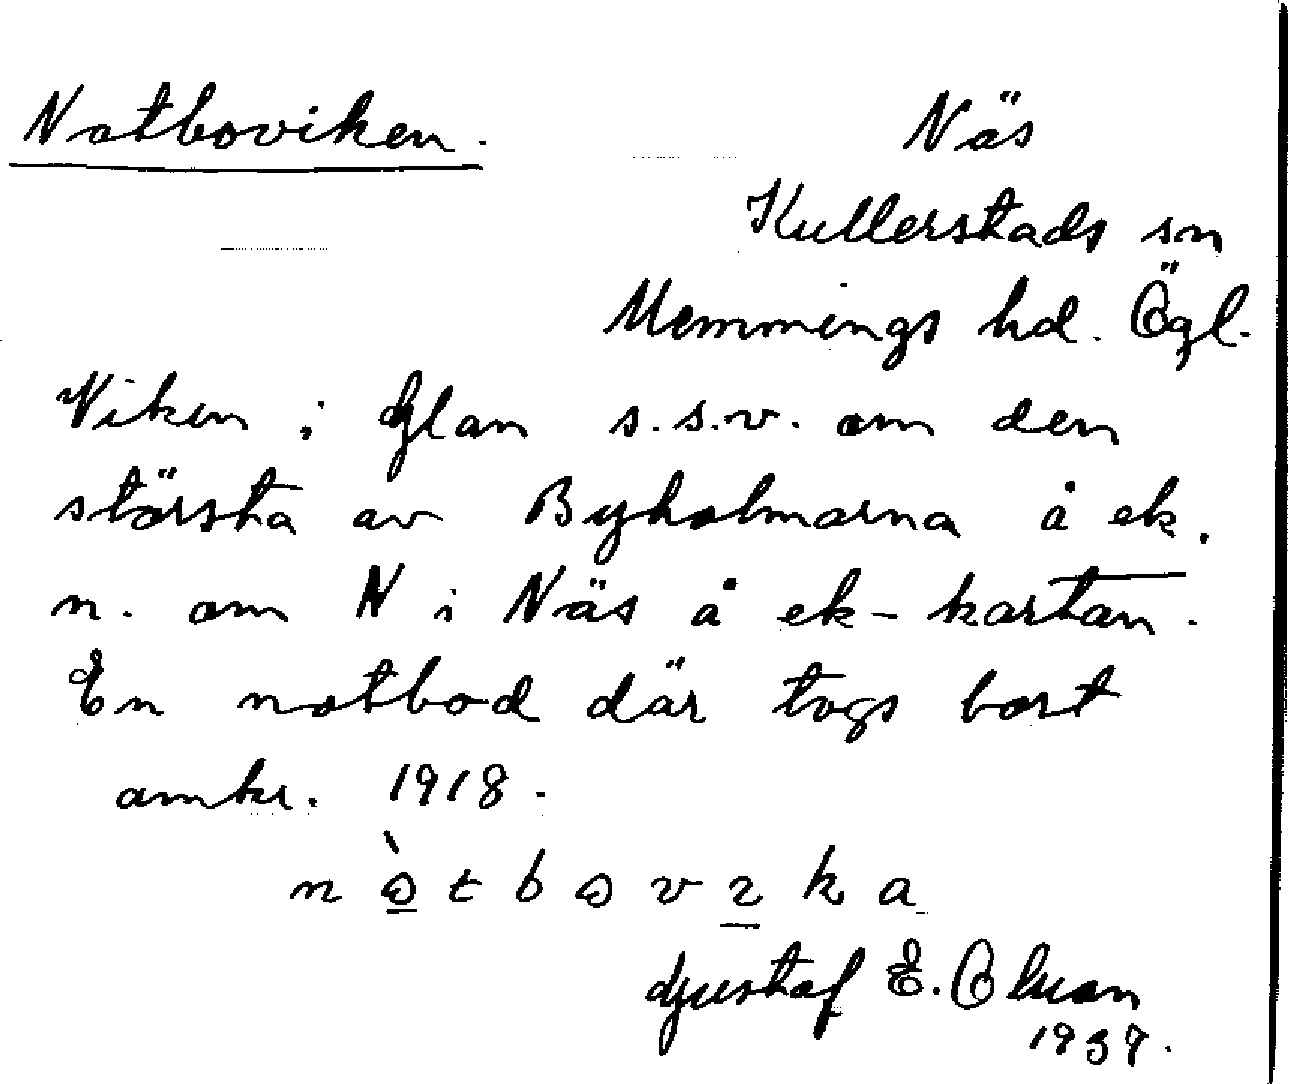 Notboviken.
Näs
Kullerstads sn
Memmings hd. Ögl.
Viken i Glan s.s.v. om den
största av Byholmarna å ek.
n. om N i Näs å ek-kartan.
En notbod där togs bort
omkr. 1918.
n ò t b o v ɩ k a
Gustaf E. Olson
1937.